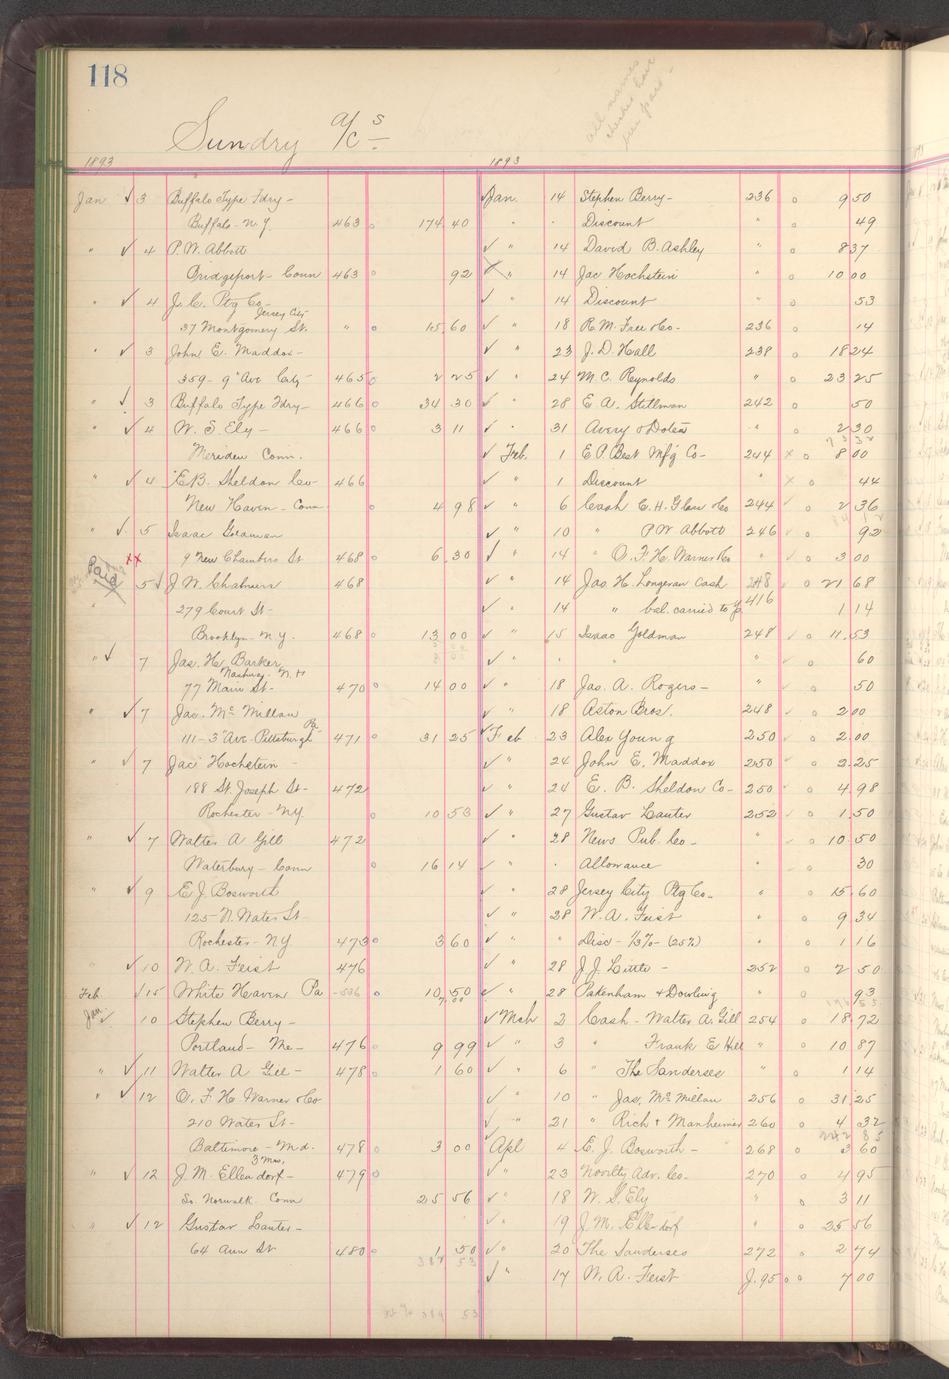 118
all names
checked have
Sundry a/cs
1893
Jan 3 Buffalo Type Fdry -
Buffalo - N.Y. 463 174 40
" 4 P. W. Abbott
Bridgeport - Conn 463 92
" 4 J. C. Ptg Co -
Jersey City
37 Montgomery St. " 15.60
" 3 John E. Maddox -
359 - 9" Ave City - 465 2 25
" 3 Buffalo Type Fdry - 466 34 30
" 4 W. S. Ely - 466 3 11
Meriden Conn.
" 4 E. B. Sheldon Co - 466
New Haven - Conn 4 98
" 5 Isaac Goldman
xx 9 New Chambers St 468 6 30
Paid
5 J. W. Chalmers 468
279 Court St -
Brooklyn - N.Y. 468 13 00
" 7 Jas. H. Barker
Nashua - N. H
77 Main St - 470 14 00
" 7 Jas. Mc Millan
Pa
111 - 3" Ave - Pittsburgh 471 31 25
" 7 Jac Hochstein -
188 St. Joseph St - 472
Rochester - N.Y. 10 53
" 7 Walter A Gill 472
Waterbury - Conn 16 14
" 9 E. J. Bosworth
125 N. Water St -
Rochester - NY 473 3 60
" 10 W. A. Feist 476
Feb. 15 White Haven Pa 10.50
7.00
Jan. 10 Stephen Berry -
Portland - Me - 476 9 99
" 11 Walter A Gill - 478 1 60
" 12 O. F. H. Warner & Co
210 Water St -
Baltimore - Md. 478 3 00
3 Mos.
" 12 J. M. Ellendorf - 479
So. Norwalk Conn 25 56
" 12 Gustav Lauter -
64 Ann St 480 1 50
387 53
1893
Jan. 14 Stephen Berry - 236 9 50
" " Discount " 49
" 14 David B. Ashley " 8 37
" 14 Jac Hochstein " 10 00
" 14 Discount 53
" 18 R. M. Free & Co - 236 14
" 23 J. D. Hall 238 18 24
" 24 M. C. Reynolds " 23 25
" 28 E A. Stillman 242 50
" 31 Avery & Doten " 2 30
Feb. 1 E P. Best Mfg Co - 244 x 8 00
" 1 Discount " x 44
" 6 Cash C. H. Glen & Co 244 2 36
" 10 " P W Abbott 246 92
" 14 " O. F. H. Warner & Co " 3 00
" 14 Jas. H. Longeran Cash 248 21 68
" 14 " bal. carried to p 416 1 14
" 15 Isaac Goldman 248 11.53
" " " " 60
" 18 Jas. A. Rogers - " 50
" 18 Aston Bros. 248 2 00
Feb 23 Alex Young 250 2.00
" 24 John E. Maddox 250 2.25
" 24 E. B. Sheldon Co - 250 4.98
" 27 Gustav Lauter 252 1.50
" 28 News Pub. Co - " 10.50
" " Allowance " 30
" 28 Jersey City Ptg Co - " 15.60
" 28 W. A. Feist " 9 34
" " Disc - 1/3% - (25%) " 1 16
" 28 J. J. Little - 252 2 50
" 28 Pakenham & Dowling " 93
Mch 2 Cash - Walter A. Gill 254 18.72
" 3 " Frank E Hill " 10 87
" 6 " The Sanderses " 1 14
" 10 " Jas. Mc Millan 256 31.25
" 21 " Rich & Manheimer 260 4 32
Apl 4 E. J. Bosworth - " 268 3 60
" 23 Novelty Adv. Co - 270 4 95
" 18 W. S. Ely " 3 11
" 19 J. M. Ellendorf " 25 56
" 20 The Sanderses 272 2 74
" 17 W. A. Feist J. 95 7 00